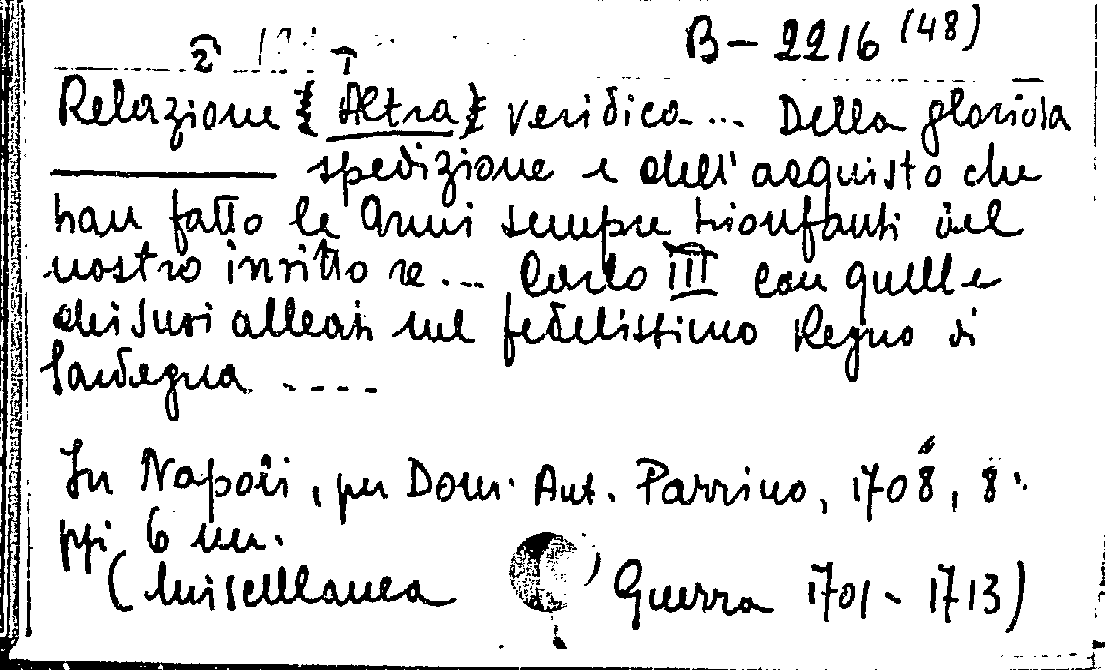 B - 2216 (48)
2 1
Relazione { Altra } veridica ... Della gloriosa
spedizione e dell'acquisto che
han fatto le Armi sempre trionfanti del
nostro invitto re ... Carlo III con quelle
dei suoi alleati nel fedelissimo Regno di
Sardegna ....
In Napoli, per Dom. Ant. Parrino, 1708, 8º.
pp. 6 nn.
(Miscellanea Guerra 1701 - 1713)